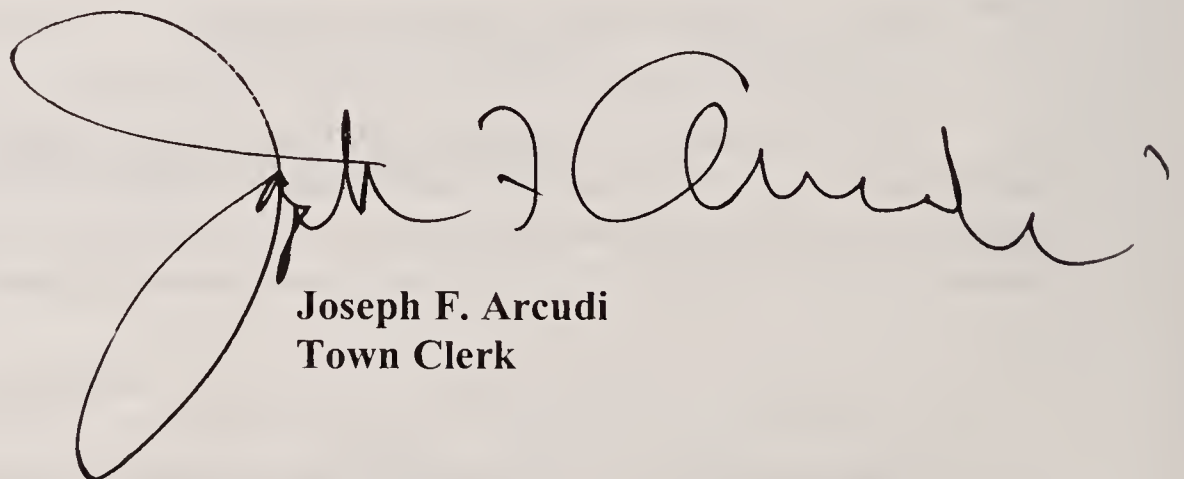 Joseph F Arcudi
Joseph F. Arcudi
Town Clerk